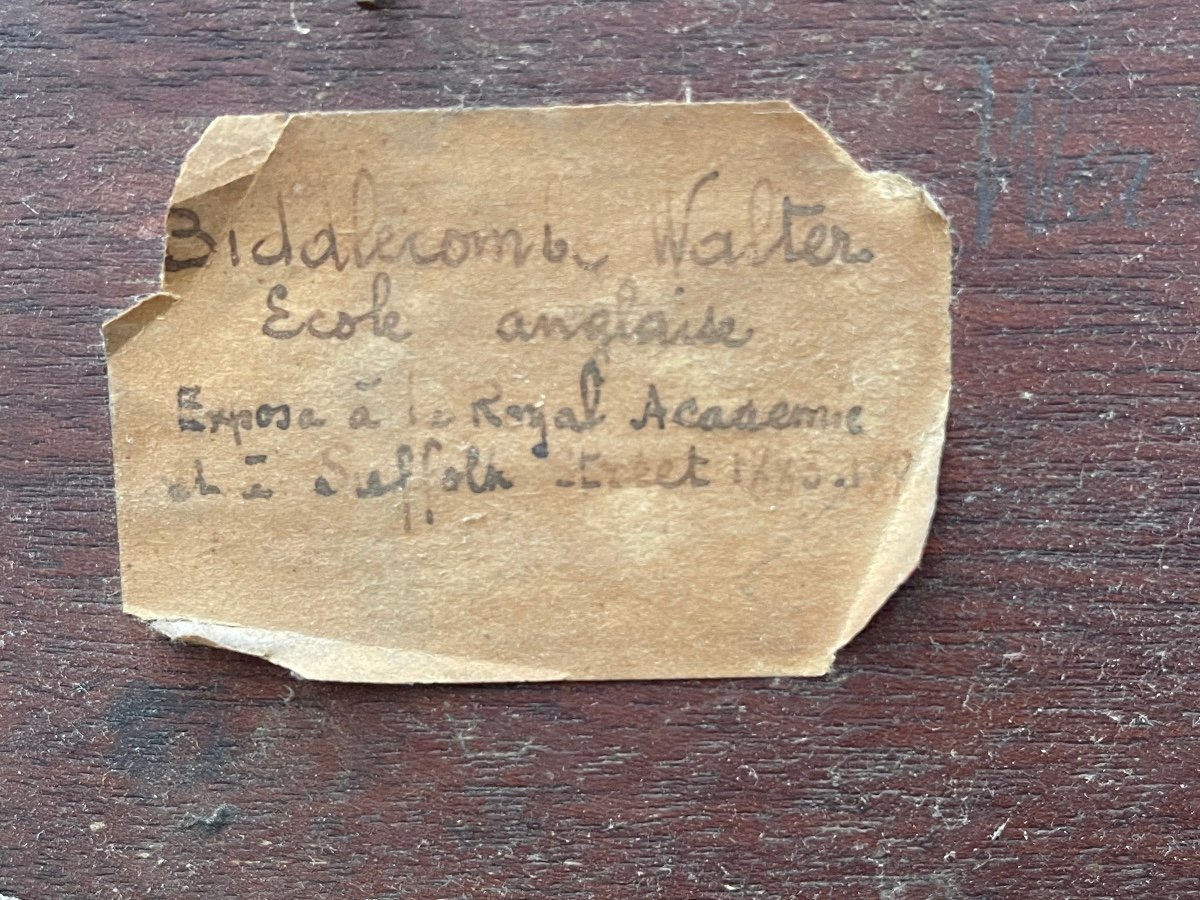 Biddalecombe Walter
Ecole anglaise
Exposa à la Royal Academie
et à Suffolk Street